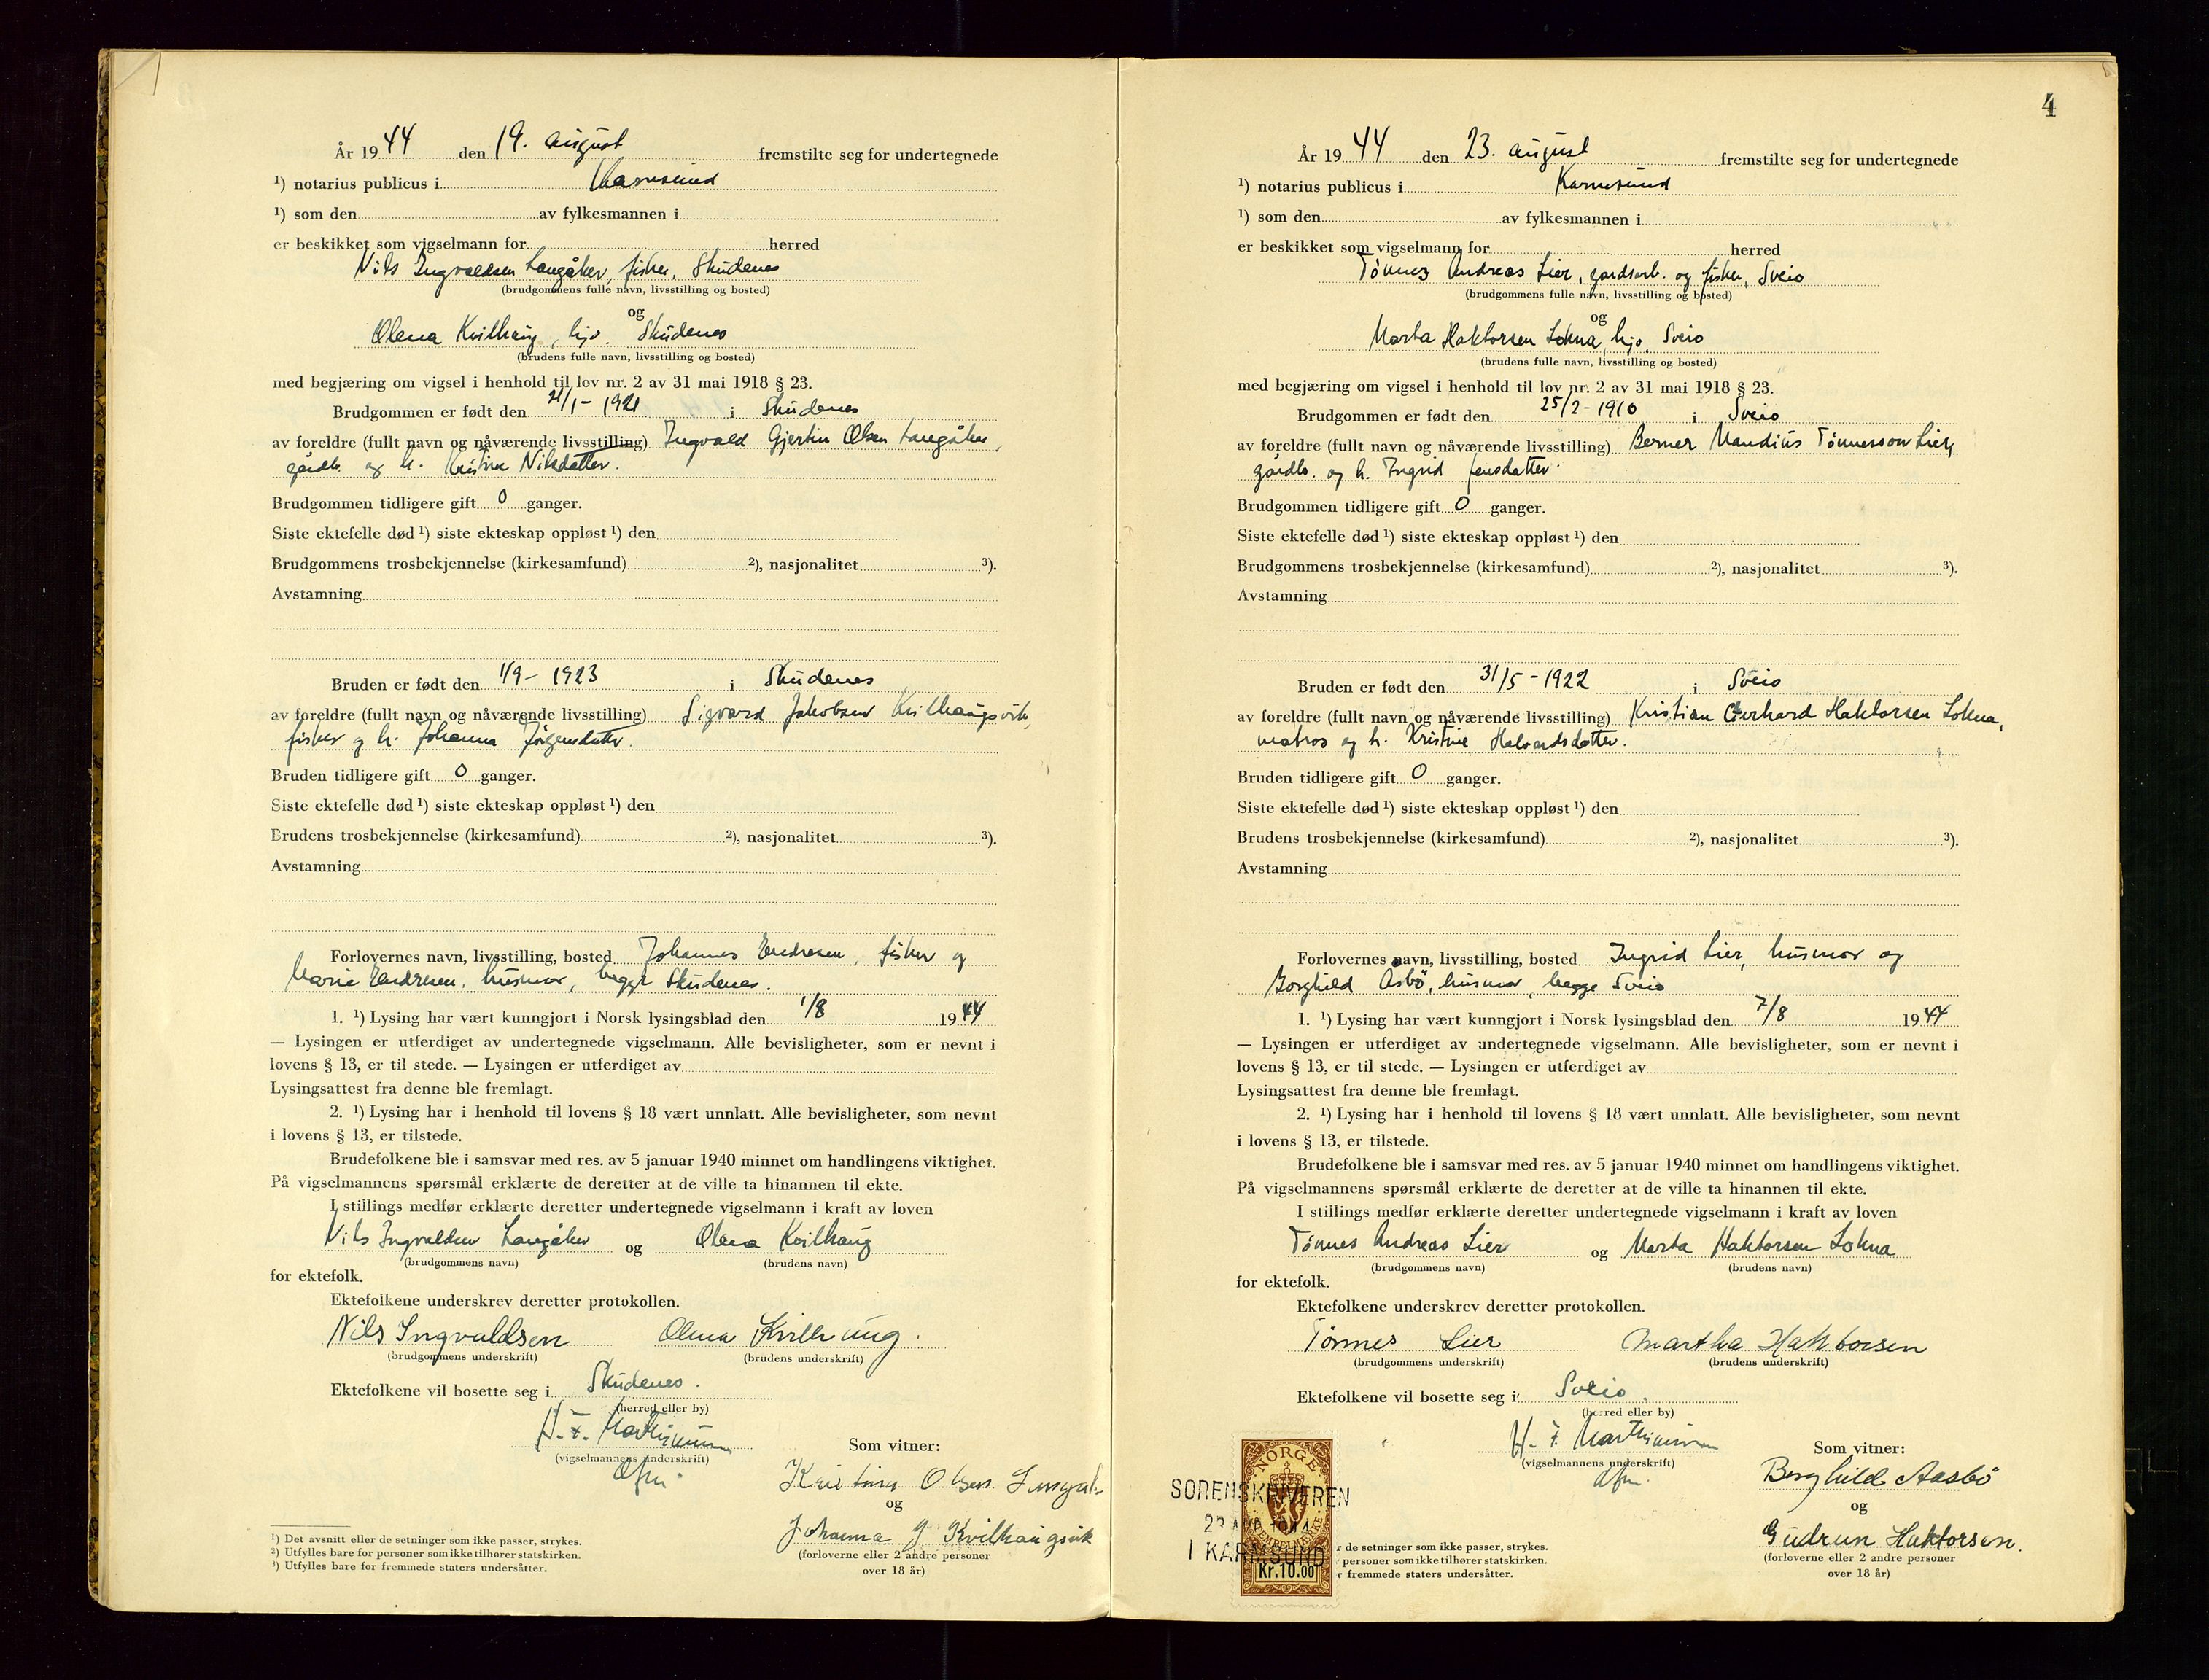 År 1944 den 19. august fremstilte seg for undertegnede
¹) notarius publicus i Karmsund
¹) som den av fylkesmannen i
er beskikket som vigselmann for herred
Nils Ingvaldsen Langåker, fisker, Skudenes
(brudgommens fulle navn, livsstilling og bosted)
og
Olena Kvilhaug, hjv. Skudenes
(brudens fulle navn, livsstilling og bosted)
med begjæring om vigsel i henhold til lov nr. 2 av 31 mai 1918 § 23.
Brudgommen er født den 21/1 - 1921 i Skudenes
av foreldre (fullt navn og nåværende livsstilling) Ingvald Gjertin Olsen Langåker,
gårdb. og h. Kristine Nilsdatter.
Brudgommen tidligere gift 0 ganger.
Siste ektefelle død ¹) siste ekteskap oppløst ¹) den
Brudgommens trosbekjennelse (kirkesamfund) ²), nasjonalitet ³).
Avstamning
Bruden er født den 1/9 - 1923 i Skudenes
av foreldre (fullt navn og nåværende livsstilling) Sigvard Jakobsen Kvilhaugsvik,
fisker og h. Johanna Jørgensdatter.
Bruden tidligere gift 0 ganger.
Siste ektefelle død ¹) siste ekteskap oppløst ¹) den
Brudens trosbekjennelse (kirkesamfund) ²), nasjonalitet ³).
Avstamning
Forlovernes navn, livsstilling, bosted Johannes Endresen, fisker og
Marie Endresen, husmor, begge Skudenes.
1. ¹) Lysing har vært kunngjort i Norsk lysingsblad den 1/8 1944
— Lysingen er utferdiget av undertegnede vigselmann. Alle bevisligheter, som er nevnt i
lovens § 13, er til stede. — Lysingen er utferdiget av
Lysingsattest fra denne ble fremlagt.
2. ¹) Lysing har i henhold til lovens § 18 vært unnlatt. Alle bevisligheter, som nevnt
i lovens § 13, er tilstede.
Brudefolkene ble i samsvar med res. av 5 januar 1940 minnet om handlingens viktighet.
På vigselmannens spørsmål erklærte de deretter at de ville ta hinannen til ekte.
I stillings medfør erklærte deretter undertegnede vigselmann i kraft av loven
Nils Ingvaldsen Langåker og Olena Kvilhaug
(brudgommens navn) (brudens navn)
for ektefolk.
Ektefolkene underskrev deretter protokollen.
Nils Ingvaldsen Olena Kvilhaug.
(brudgommens underskrift) (brudens underskrift)
Ektefolkene vil bosette seg i Skudenes.
(herred eller by)
(vigselmannens underskrift)
Som vitner:
Kristine Olsen
og
Johanna J Kvilhaugsvik
(forloverne eller 2 andre personer
over 18 år)
¹) Det avsnitt eller de setninger som ikke passer, strykes.
²) Utfylles bare for personer som ikke tilhører statskirken.
³) Utfylles bare for fremmede staters undersåtter.
4
År 1944 den 23. august fremstilte seg for undertegnede
¹) notarius publicus i Karmsund
¹) som den av fylkesmannen i
er beskikket som vigselmann for herred
Tønnes Andreas Lier, gardsarb. og fisker, Sveio
(brudgommens fulle navn, livsstilling og bosted)
og
Marta Haktorsen Lokna, hjv, Sveio
(brudens fulle navn, livsstilling og bosted)
med begjæring om vigsel i henhold til lov nr. 2 av 31 mai 1918 § 23.
Brudgommen er født den 25/2 - 1910 i Sveio
av foreldre (fullt navn og nåværende livsstilling) Berner Mandius Tønnesson Lier,
gårdb. og h. Ingrid Jensdatter.
Brudgommen tidligere gift 0 ganger.
Siste ektefelle død ¹) siste ekteskap oppløst ¹) den
Brudgommens trosbekjennelse (kirkesamfund) ²), nasjonalitet ³).
Avstamning
Bruden er født den 31/5 - 1922 i Sveio
av foreldre (fullt navn og nåværende livsstilling) Kristian Gerhard Haktorsen Lokna,
matros og h. Kristine Halvardsdatter.
Bruden tidligere gift 0 ganger.
Siste ektefelle død ¹) siste ekteskap oppløst ¹) den
Brudens trosbekjennelse (kirkesamfund) ²), nasjonalitet ³).
Avstamning
Forlovernes navn, livsstilling, bosted Ingrid Lier, husmor og
Borghild Asbö, husmor, begge Sveio
1. ¹) Lysing har vært kunngjort i Norsk lysingsblad den 7/8 1944
— Lysingen er utferdiget av undertegnede vigselmann. Alle bevisligheter, som er nevnt i
lovens § 13, er til stede. — Lysingen er utferdiget av
Lysingsattest fra denne ble fremlagt.
2. ¹) Lysing har i henhold til lovens § 18 vært unnlatt. Alle bevisligheter, som nevnt
i lovens § 13, er tilstede.
Brudefolkene ble i samsvar med res. av 5 januar 1940 minnet om handlingens viktighet.
På vigselmannens spørsmål erklærte de deretter at de ville ta hinannen til ekte.
I stillings medfør erklærte deretter undertegnede vigselmann i kraft av loven
Tønnes Andreas Lier og Marta Haktorsen Lokna
(brudgommens navn) (brudens navn)
for ektefolk.
Ektefolkene underskrev deretter protokollen.
Tönnes Lier Martha Haktorsen
(brudgommens underskrift) (brudens underskrift)
Ektefolkene vil bosette seg i Sveio.
(herred eller by)
(vigselmannens underskrift)
Som vitner:
Borghild Aasbö
og
Gudrun Haktorsen.
(forloverne eller 2 andre personer
over 18 år)
NORGE
STEMPELMERKE
Kr.10.00
SORENSKRIVEREN
23 AUG 1944
I KARMSUND
r de setninger som ikke passer, strykes.
personer som ikke tilhører statskirken.
r fremmede staters undersåtter.